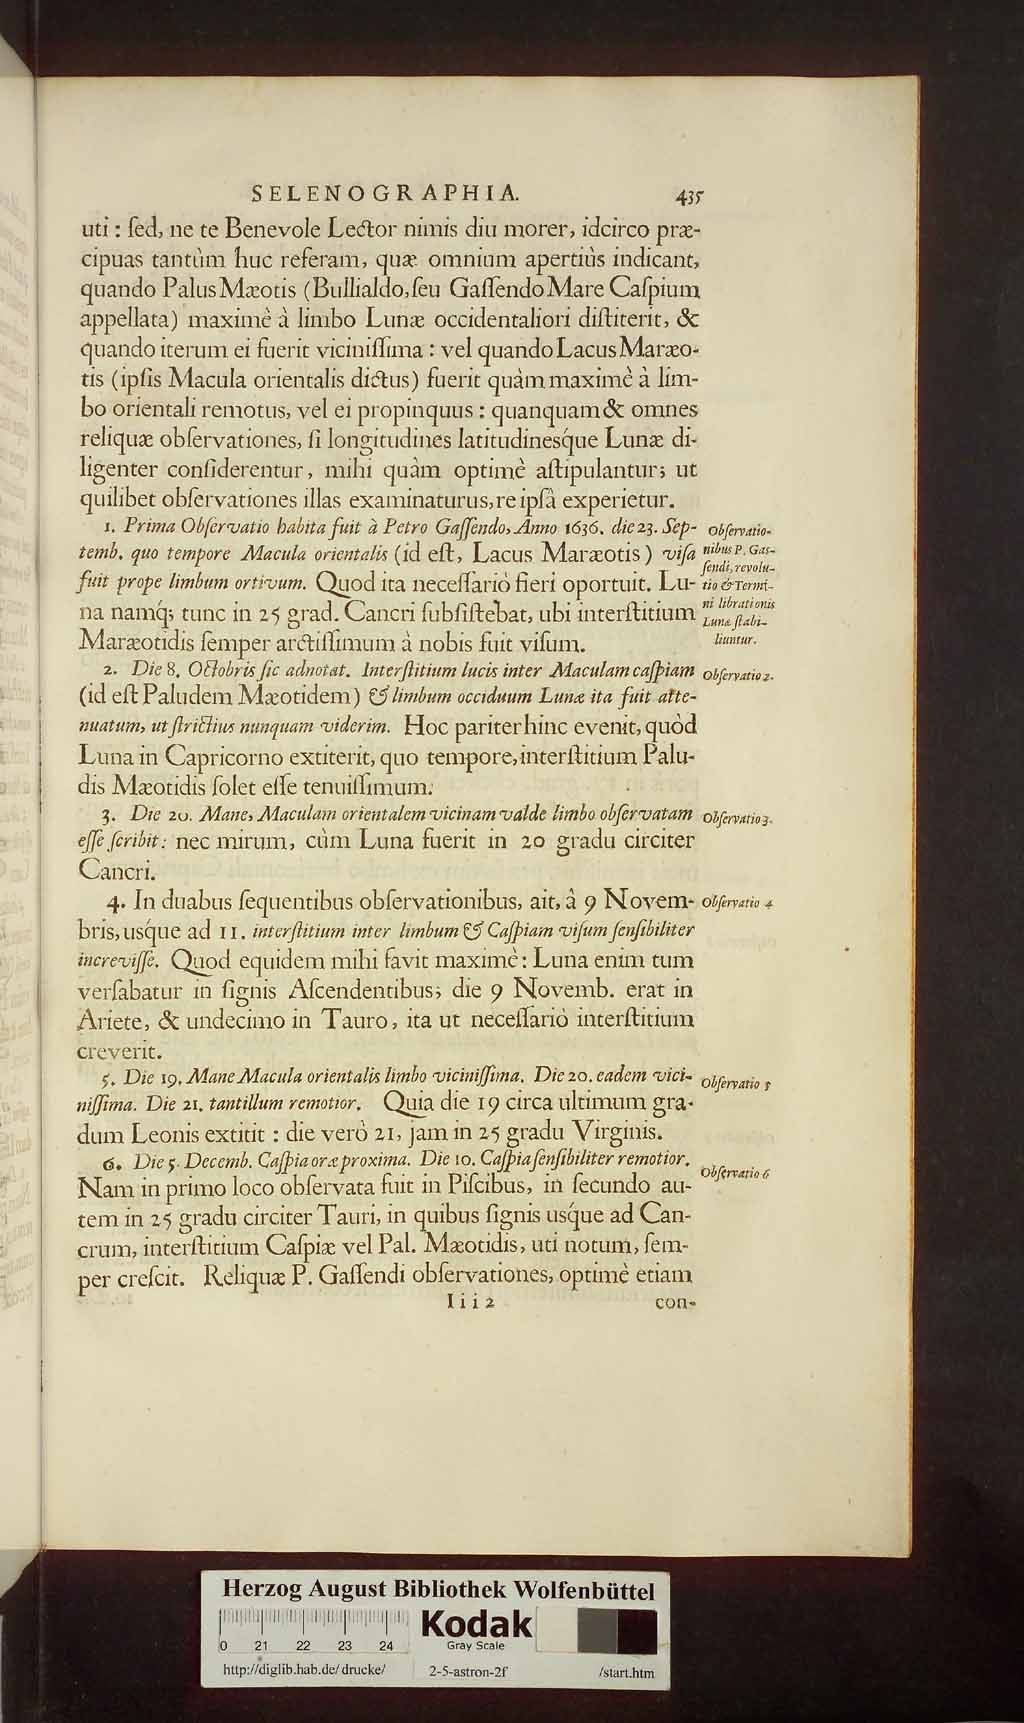 SELENOGRAPHIA. 435
uti : ſed, ne te Benevole Lector nimis diu morer, idcirco præ-
cipuas tantùm huc referam, quæ omnium apertiùs indicant,
quando Palus Mæotis (Bullialdo, ſeu Gaſſendo Mare Caſpium
appellata) maximè à limbo Lunæ occidentaliori diſtiterit, &
quando iterum ei fuerit viciniſſima : vel quando Lacus Maræo-
tis (ipſis Macula orientalis dictus) fuerit quàm maximè à lim-
bo orientali remotus, vel ei propinquus : quanquam & omnes
reliquæ obſervationes, ſi longitudines latitudinesq́ue Lunæ di-
ligenter conſiderentur, mihi quàm optimè aſtipulantur; ut
quilibet obſervationes illas examinaturus, re ipſâ experietur.
1. Prima Obſervatio habita fuit à Petro Gaſſendo, Anno 1636. die 23. Sep-
temb. quo tempore Macula orientalis (id eſt, Lacus Maræotis) viſa
fuit prope limbum ortivum. Quod ita neceſſariò fieri oportuit. Lu-
na namq́; tunc in 25 grad. Cancri ſubſiſtebat, ubi interſtitium
Maræotidis ſemper arctiſſimum à nobis fuit viſum.
Obſervatio-
nibus P. Gas-
ſendi, revolu-
tio & Termi-
ni librationis
Lunæ ſtabi-
liuntur.
2. Die 8. Octobris ſic adnotat. Interſtitium lucis inter Maculam caſpiam
(id eſt Paludem Mæotidem) & limbum occiduum Lunæ ita fuit atte-
nuatum, ut ſtrictius nunquam viderim. Hoc pariter hinc evenit, quòd
Luna in Capricorno extiterit, quo tempore, interſtitium Palu-
dis Mæotidis ſolet eſſe tenuiſſimum.
Obſervatio 2.
3. Die 20. Mane, Maculam orientalem vicinam valde limbo obſervatam
eſſe ſcribit: nec mirum, cùm Luna fuerit in 20 gradu circiter
Cancri.
Obſervatio 3.
4. In duabus ſequentibus obſervationibus, ait, à 9 Novem-
bris, usq́ue ad 11. interſtitium inter limbum & Caſpiam viſum ſenſibiliter
increviſſe. Quod equidem mihi favit maximè: Luna enim tum
verſabatur in ſignis Aſcendentibus; die 9 Novemb. erat in
Ariete, & undecimo in Tauro, ita ut neceſſariò interſtitium
creverit.
Obſervatio 4
5. Die 19. Mane Macula orientalis limbo viciniſſima. Die 20. eadem vici-
niſſima. Die 21. tantillum remotior. Quia die 19 circa ultimum gra-
dum Leonis extitit : die verò 21, jam in 25 gradu Virginis.
Obſervatio 5
6. Die 5. Decemb. Caſpia oræ proxima. Die 10. Caſpia ſenſibiliter remotior.
Nam in primo loco obſervata fuit in Piſcibus, in ſecundo au-
tem in 25 gradu circiter Tauri, in quibus ſignis usq́ue ad Can-
crum, interſtitium Caſpiæ vel Pal. Mæotidis, uti notum, ſem-
per creſcit. Reliquæ P. Gaſſendi obſervationes, optimè etiam
Obſervatio 6
Iii 2 con-
Herzog August Bibliothek Wolfenbüttel
Kodak
Gray Scale
0 21 22 23 24
http://diglib.hab.de/drucke/ 2-5-astron-2f /start.htm